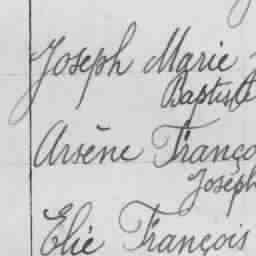 Joseph Marie
Baptist
Arsène Franço
Joseph
Elie François